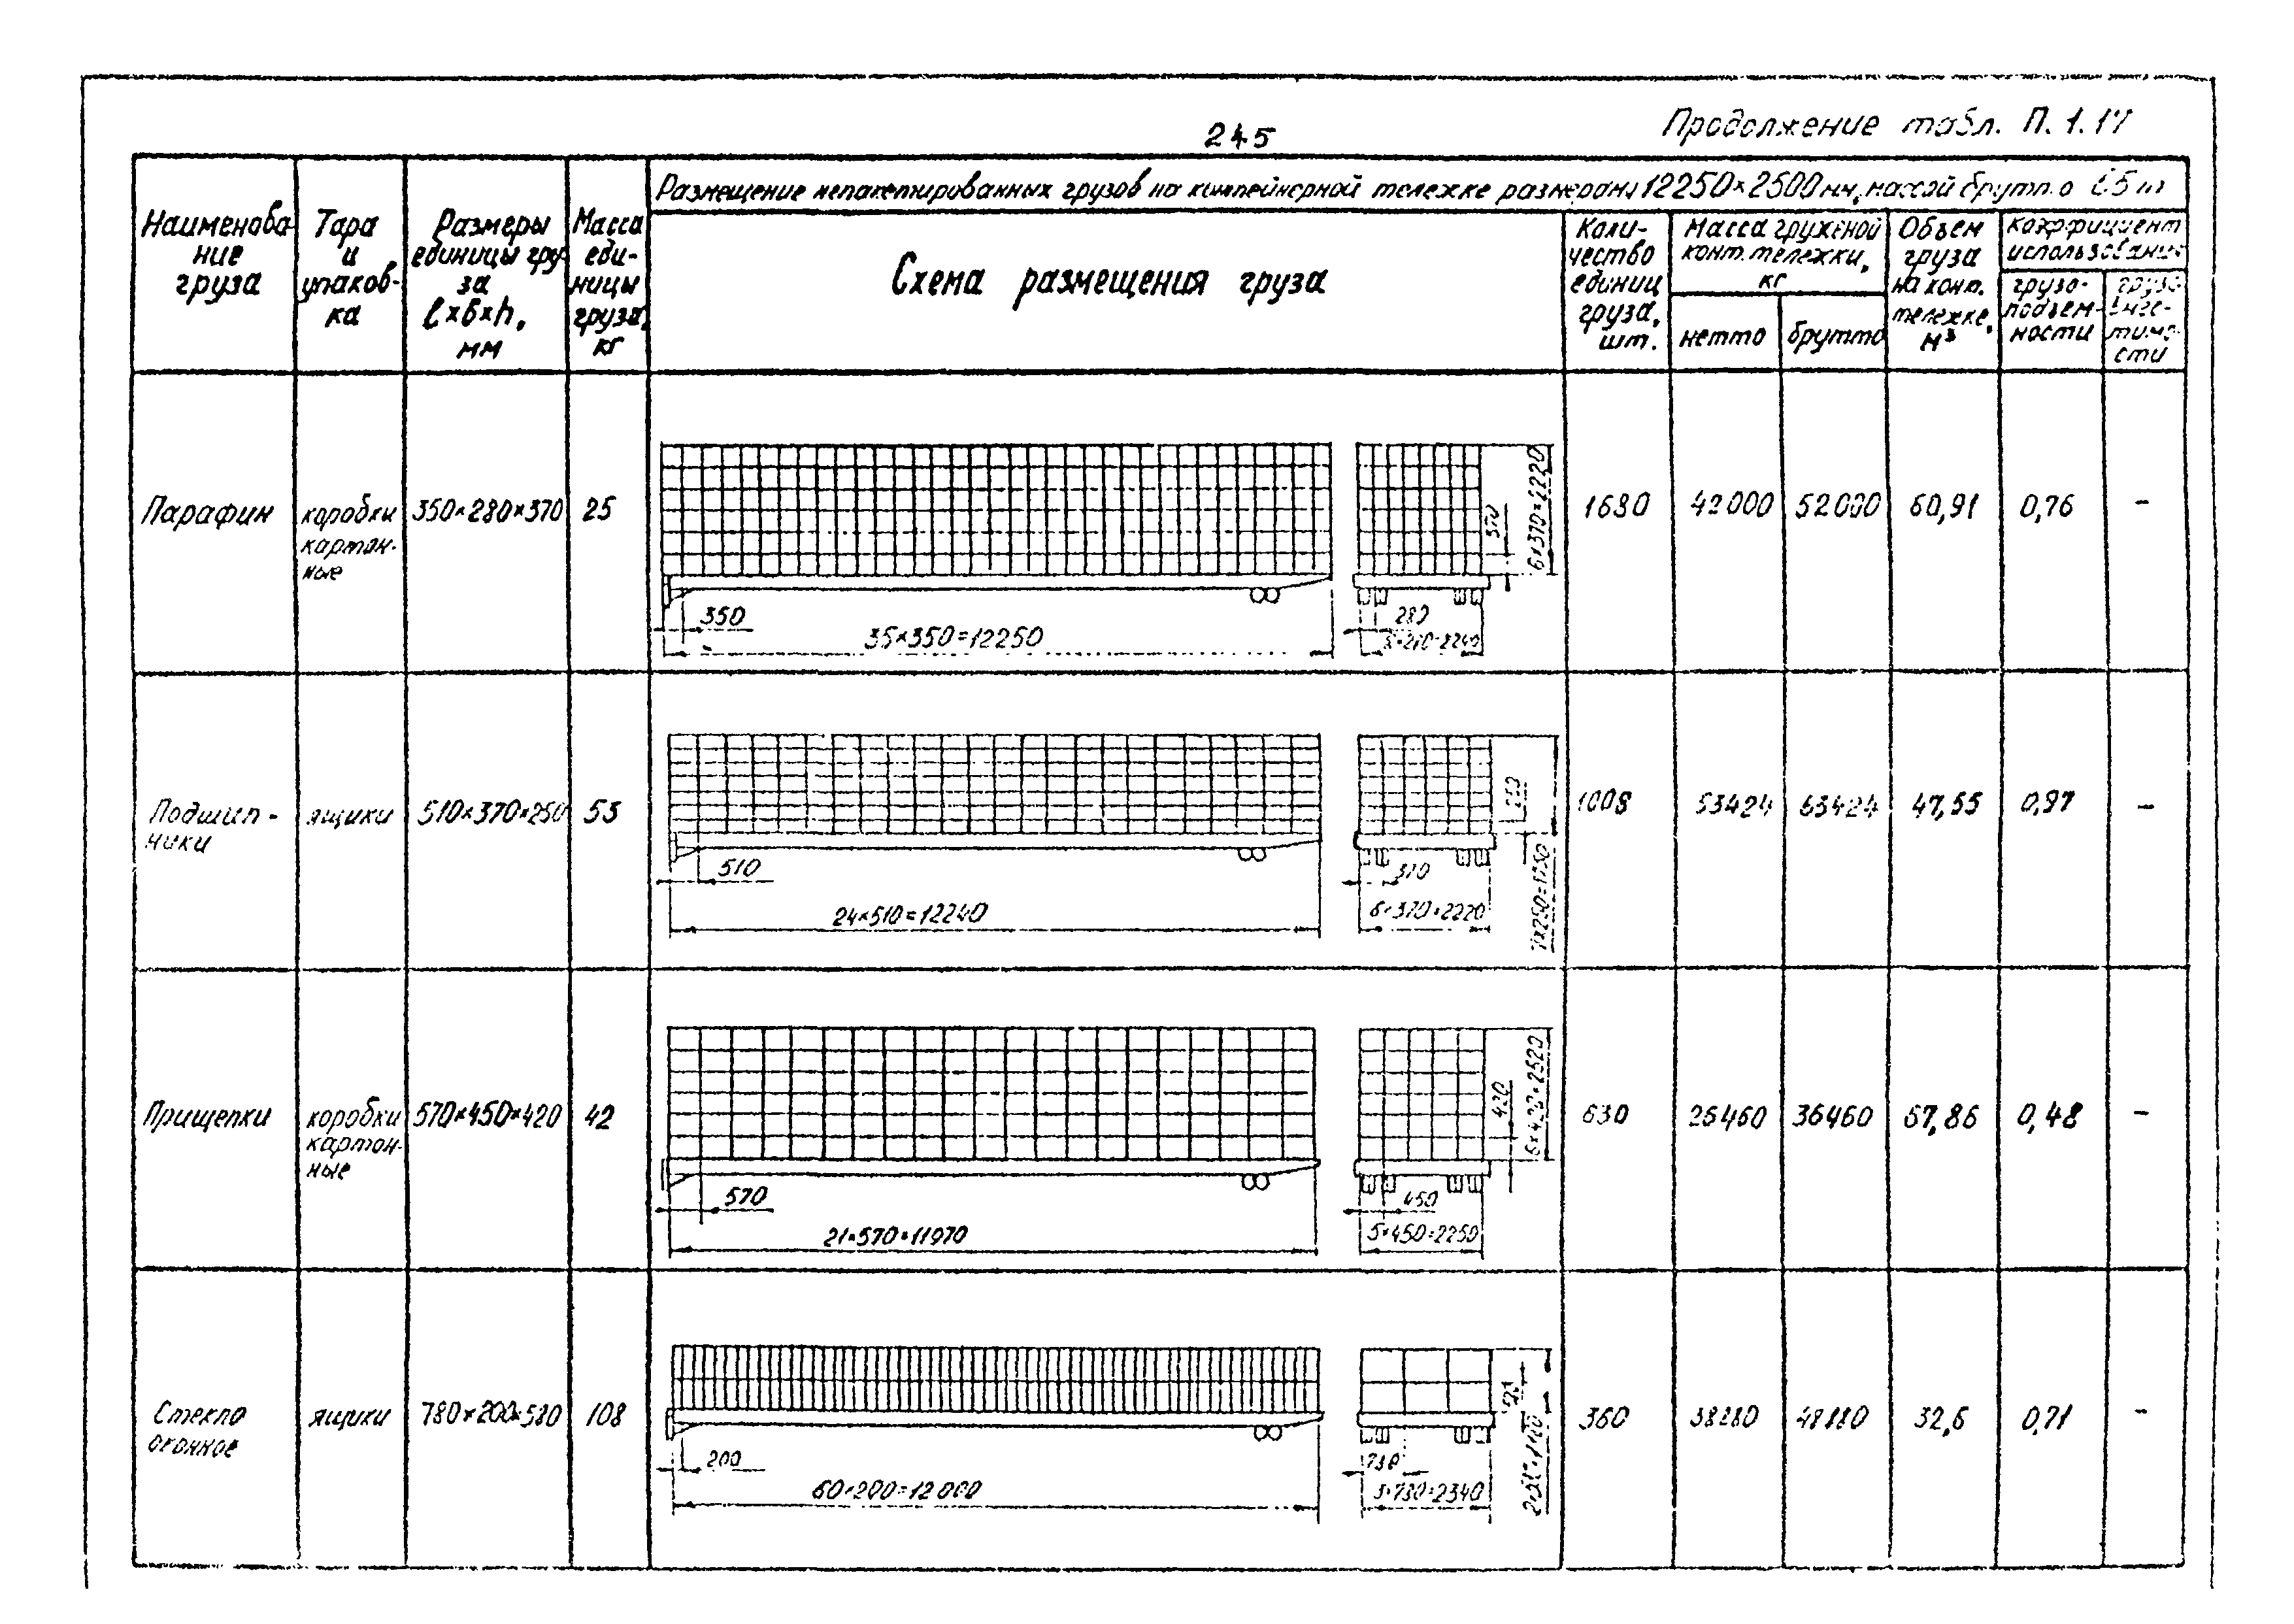 245
Продолжение табл. П. 1. 17
Наименова
ние
груза
Тара
и
упаков-
ка
Размеры
единицы гру
за
l×b×h,
мм
Масса
еди-
ницы
груза,
кг
Размещение непакетированных грузов на контейнерной тележке размерами 12250×2500мм, массой брутто 65 т
Схема размещения груза
Коли-
чество
единиц
груза,
шт.
Масса груженой
конт. тележки,
кг
нетто
брутто
Объем
груза
на конт.
тележке,
м³
Коэффициент
использования
грузо-
подъем-
ности
грузо-
вмес-
тимо-
сти
Парафин
коробки
картон-
ные
350×280×370
25
350
35×350=12250
280
8×280=2240
370
6×370=2220
1680
42000
52000
60,91
0,76
–
Подшип-
ники
ящики
510×370×250
53
510
24×510=12240
370
6×370=2220
250
7×250=1750
1008
53424
63424
47,55
0,97
–
Прищепки
коробки
картон-
ные
570×450×420
42
570
21×570=11970
450
5×450=2250
420
6×420=2520
630
26460
36460
67,86
0,48
–
Стекло
оконное
ящики
780×200×580
108
200
60×200=12000
780
3×780=2340
360
32,6
0,71
–